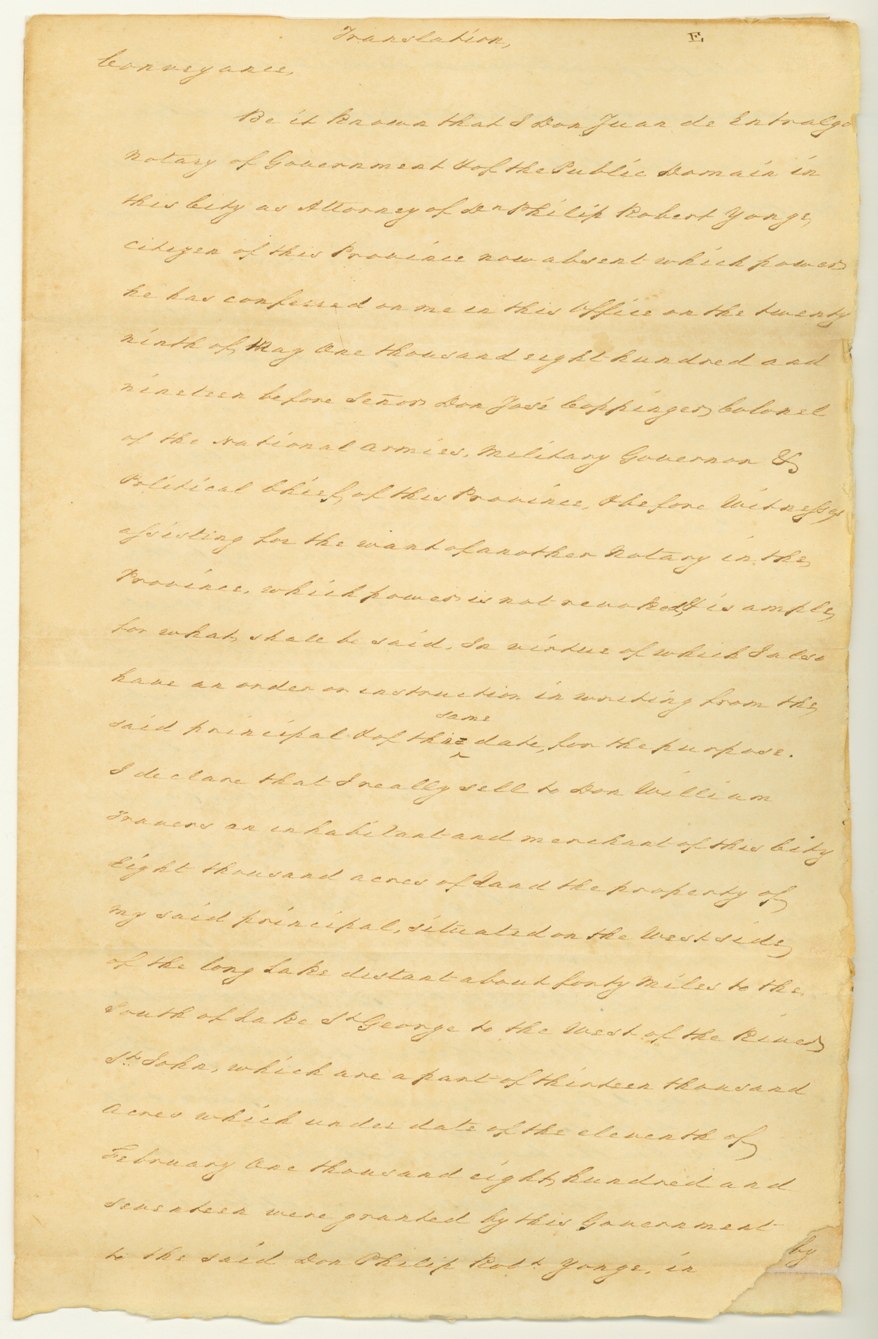 Translation,
E
Conveyance,
Be it Known that I Don Juan de Entralgo
Notary of Government & of the Public Domain in
this City as Attorney of Dn Philip Robert Yonge,
Citizen of this Province now absent which power
he has conferred on me in this Office on the twenty
ninth of May One thousand eight hundred and
nineteen before Señor Don José Coppinger, Colonel
of the National armies, Military Governor &
Political Chief, of this Province, & before Witnesses
assisting for the want of another Notary in the
Province, which power is not revoked, & is ample,
for what, shall be said, In virtue of which I also
have an order or instruction in writing from the
same
said principal & of the date, for the purpose.
I declare that I really sell to Don William
Travers an inhabitant and merchant of this City
Eight thousand acres of Land the property of
my said principal, situated on the West side,
of the long Lake distant about forty Miles to the
South of Lake St George to the West of the River
St John, which are a part of thirteen thousand
Acres which under date of the eleventh of
February One thousand eight hundred and
seventeen were granted by this Government
to the said Don Philip Robt Yonge, in
by